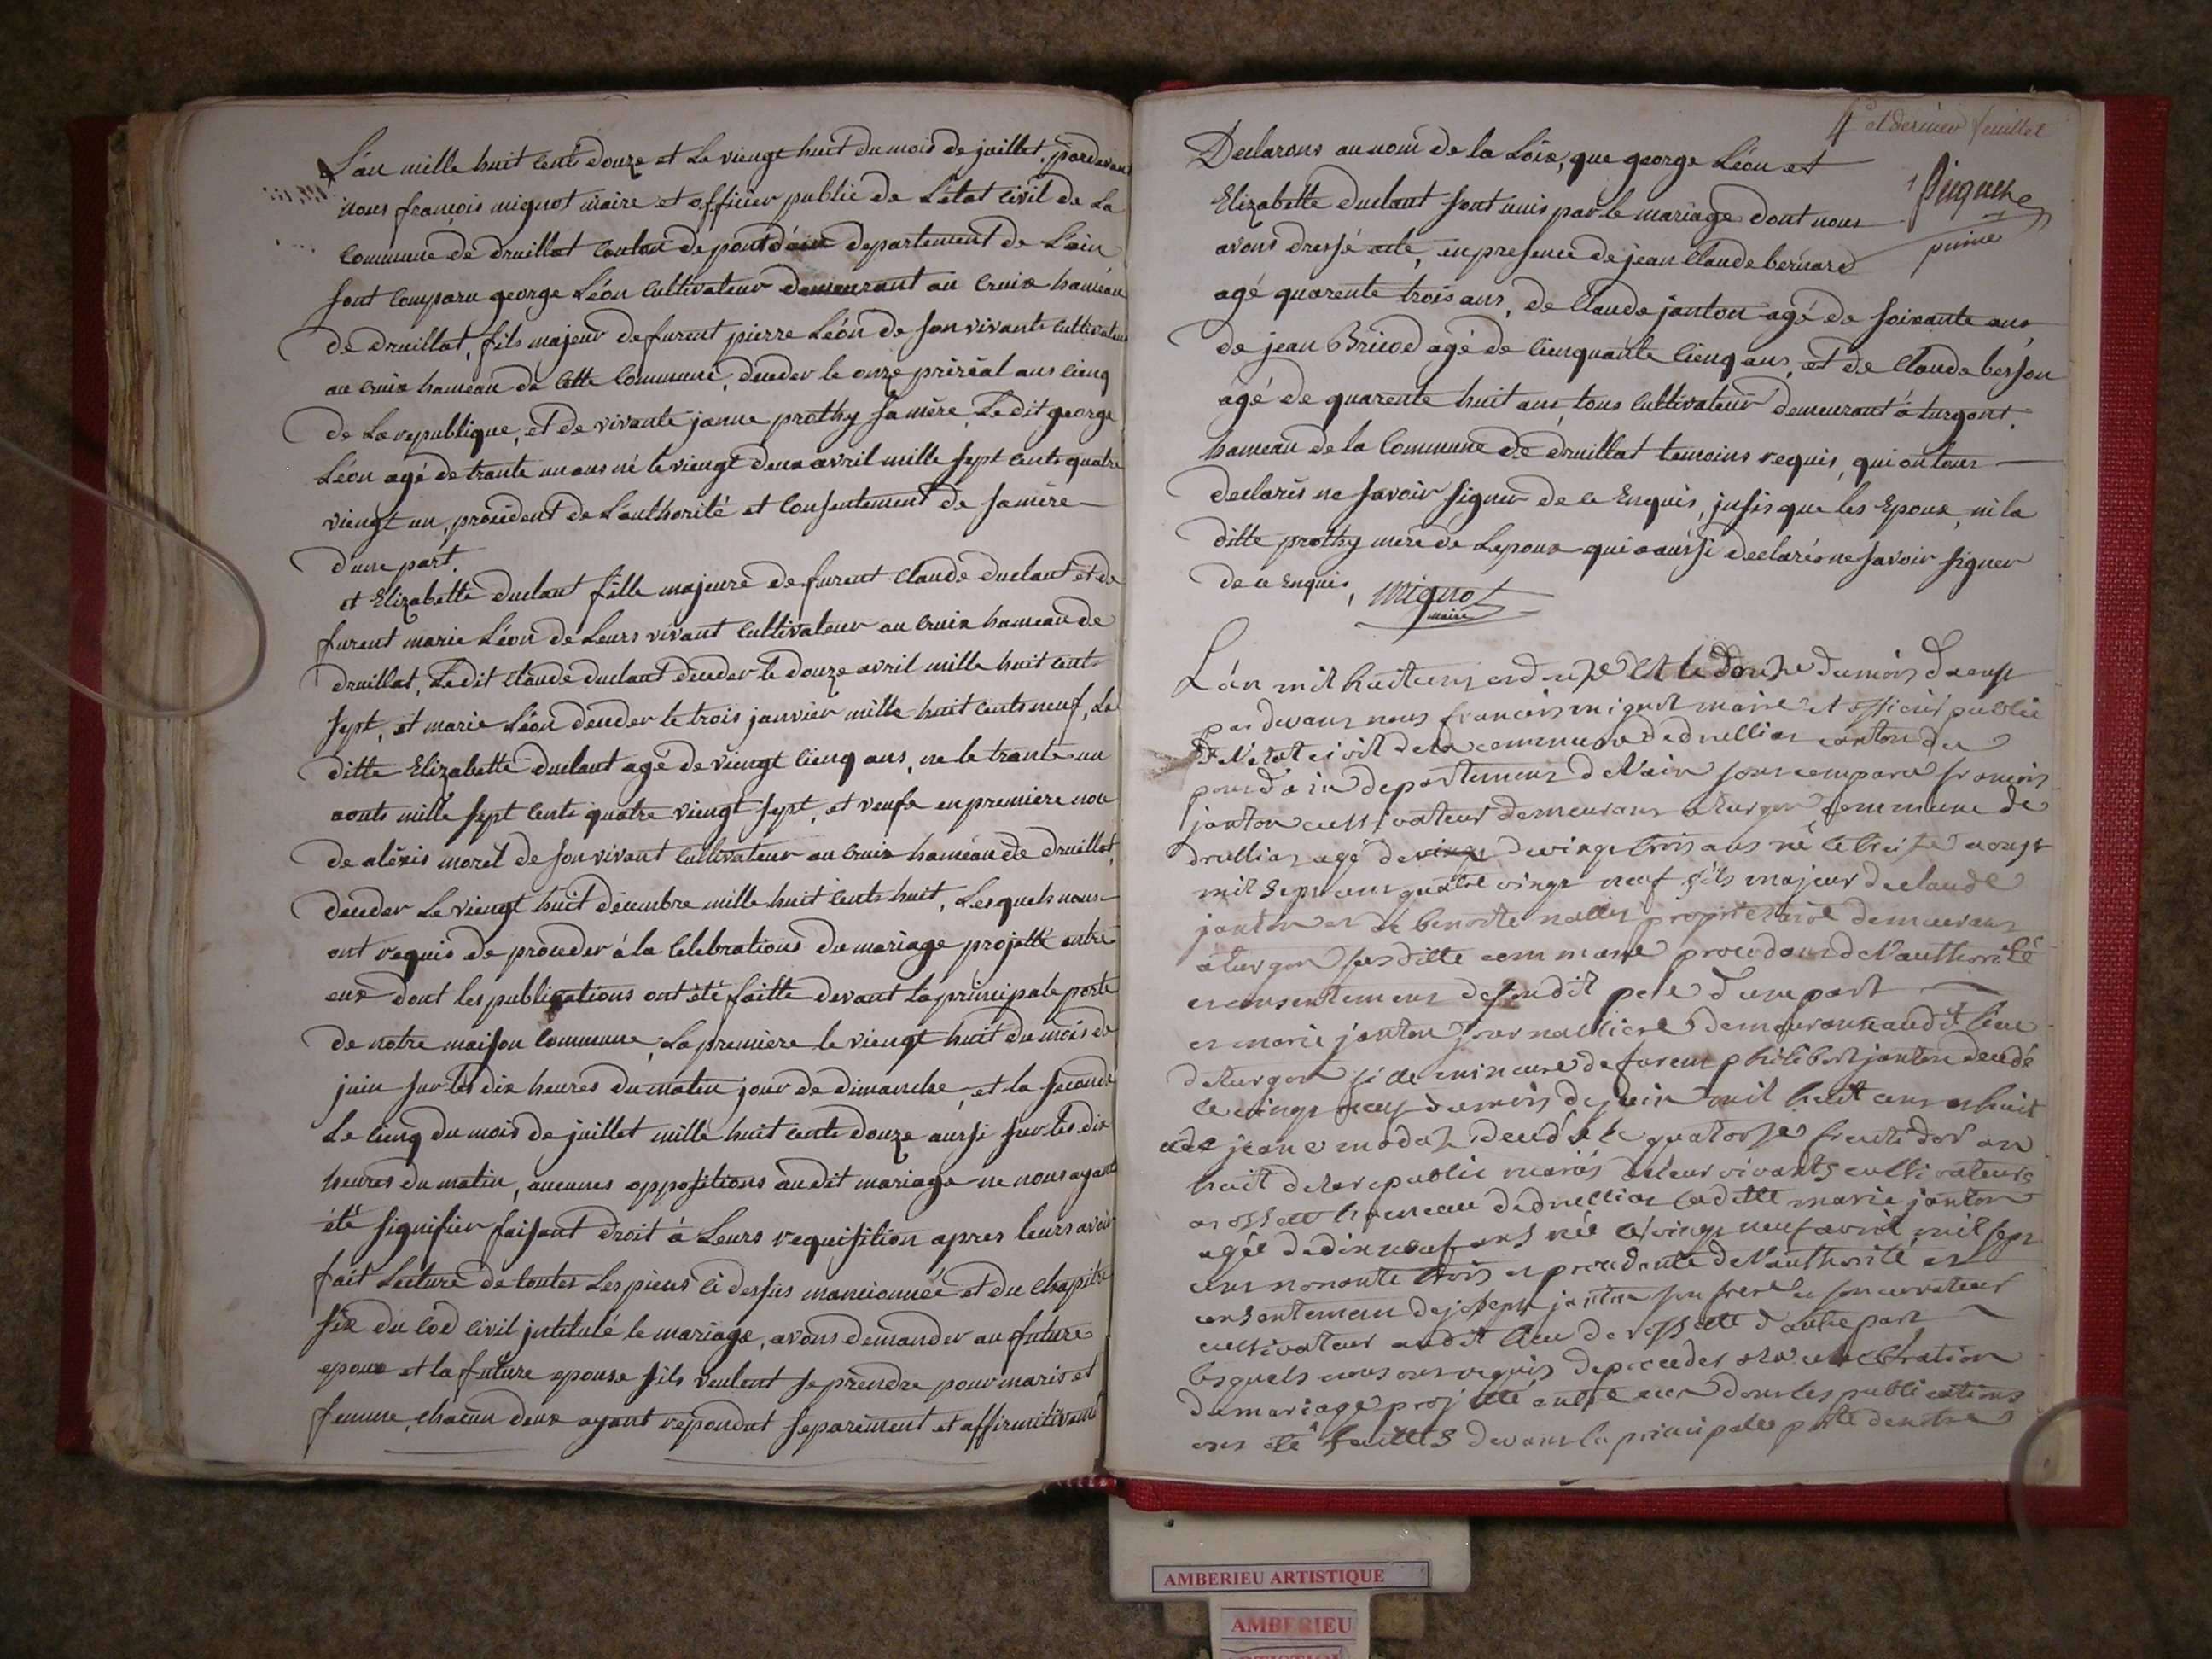 L'an mille huit cents douze et le viengt huit du mois de juillet, pardevant
nous françois mignot maire et officier public de L'état civil de La
commune de druillat canton de pont d'ain departement de L'ain
sont comparu george Léon cultivateur demeurant au cruix hameau
de druillat, fils majeur de furent pierre Léon de son vivant cultivateur
au cruix hameau de cette commune, deceder le onze priréal ans cienq
de La republique, et de vivante janne prothy sa mère, Le dit george
Léon agé de trante un ans né le viengt deux avril mille sept cents quatre
viengt un, procédent de L'authorité et consentement de sa mère
d'une part.
et Elizabette duclaut fille majeure de furent claude duclaut et de
furent marie Léon de Leurs vivant cultivateur au cruix hameau de
druillat, Le dit claude duclaut deceder le douze avril mille huit cents
sept, et marie Léon deceder le trois janvier mille huit cents neuf, La
ditte Elizabette duclaut agé de viengt cienq ans, ne le trante un
aouts mille sept cents quatre viengt sept, et veufe en premiere noce
de aléxis morel de son vivant cultivateur au cruix haméau de druillat,
deceder Le viengt huit décembre mille huit cents huit, Lesquels nous
ont requis de proceder à la celebrations du mariage projetté entre
eux dont les publications ont été faitte devant La principale porte
de notre maison commune, La premiere le viengt huit du mois de
juin sur les dix heures du matin jour de dimanche, et la seconde
Le cienq du mois de juillet mille huit cents douze aussi sur les dix
heures du matin, aucunes oppositions audit mariage ne nous ayant
été signifier faisant droit à Leurs requisition apres leurs avoir
fait Lecture de toutes Les pieces ci dessus mancionnée et du chapitre
six du cod civil jntitulé le mariage, avons demander au future
epoux et la future epouse sils veulent se prendre pour maris et
femme, chacun deux ayant repondut separément et affirmitivement
4e et dernier feuillet
Declarons au nom de la Loix, que george Léon et
Elizabette duclaut sont unis par le mariage dont nous
avons dressé acte, en presence de jean claude bernard
agé quarente trois ans, de claude janton agé de soixante ans,
de jean Bricod agé de cienquante cienq ans, et de claude berson
agé de quarente huit ans, tous cultivateur demeurant à turgont.
hameau de la commune de druillat temoins requis, qui on tous
declarés ne savoir signer de ce Enquis, jnsis que les Epoux, ni la
ditte prothy mère de Lepoux qui a aussi declarés ne savoir signer
de ce Enquis, mignot
maire
L'an mil huit cens et douse et le douse du mois d'aoust
par devans nous francois mignot maire et officier public
De l'etat civil de la commune de druillias canton de
pond d'ain departemens de l'ain sons comparu francois
janton cultivateur demeurans a turgon commune de
drullias agé de vings de vings trois ans né le treise aoust
mil sepcens quatre vings neuf fils majeur de claude
janton et de benoite proprietaire demeurans
a turgon susditte commune procedans de l'authorité
et consentemens de son dit pere d'une part
et marie janton journalliere demeurant audit lieu
de turgon fille mineure de fureur philibert janton decedé
le vings neuf du mois de juin mil huit cens et huit
et de jeane decedé le quatorse fructidor an
huit de la republic mariés de leur vivants cultivateurs
a rossette hameau de drullias la ditte marie janton
agée de dix neuf ans née le vings neuf avril mil sept
cens nonante trois et procedante de l'authorité et
consentemens de joseph janton son frere et son curateur
cultivateur audit lieu de rossette d'autre part
lesquels nous ons requis de proceder a la celebration
du mariage projetté entre eux dons les publications
ons eté faittes devans la principale porte de notre
AMBERIEU ARTISTIQUE
AMBERIEU
ARTISTIQUE